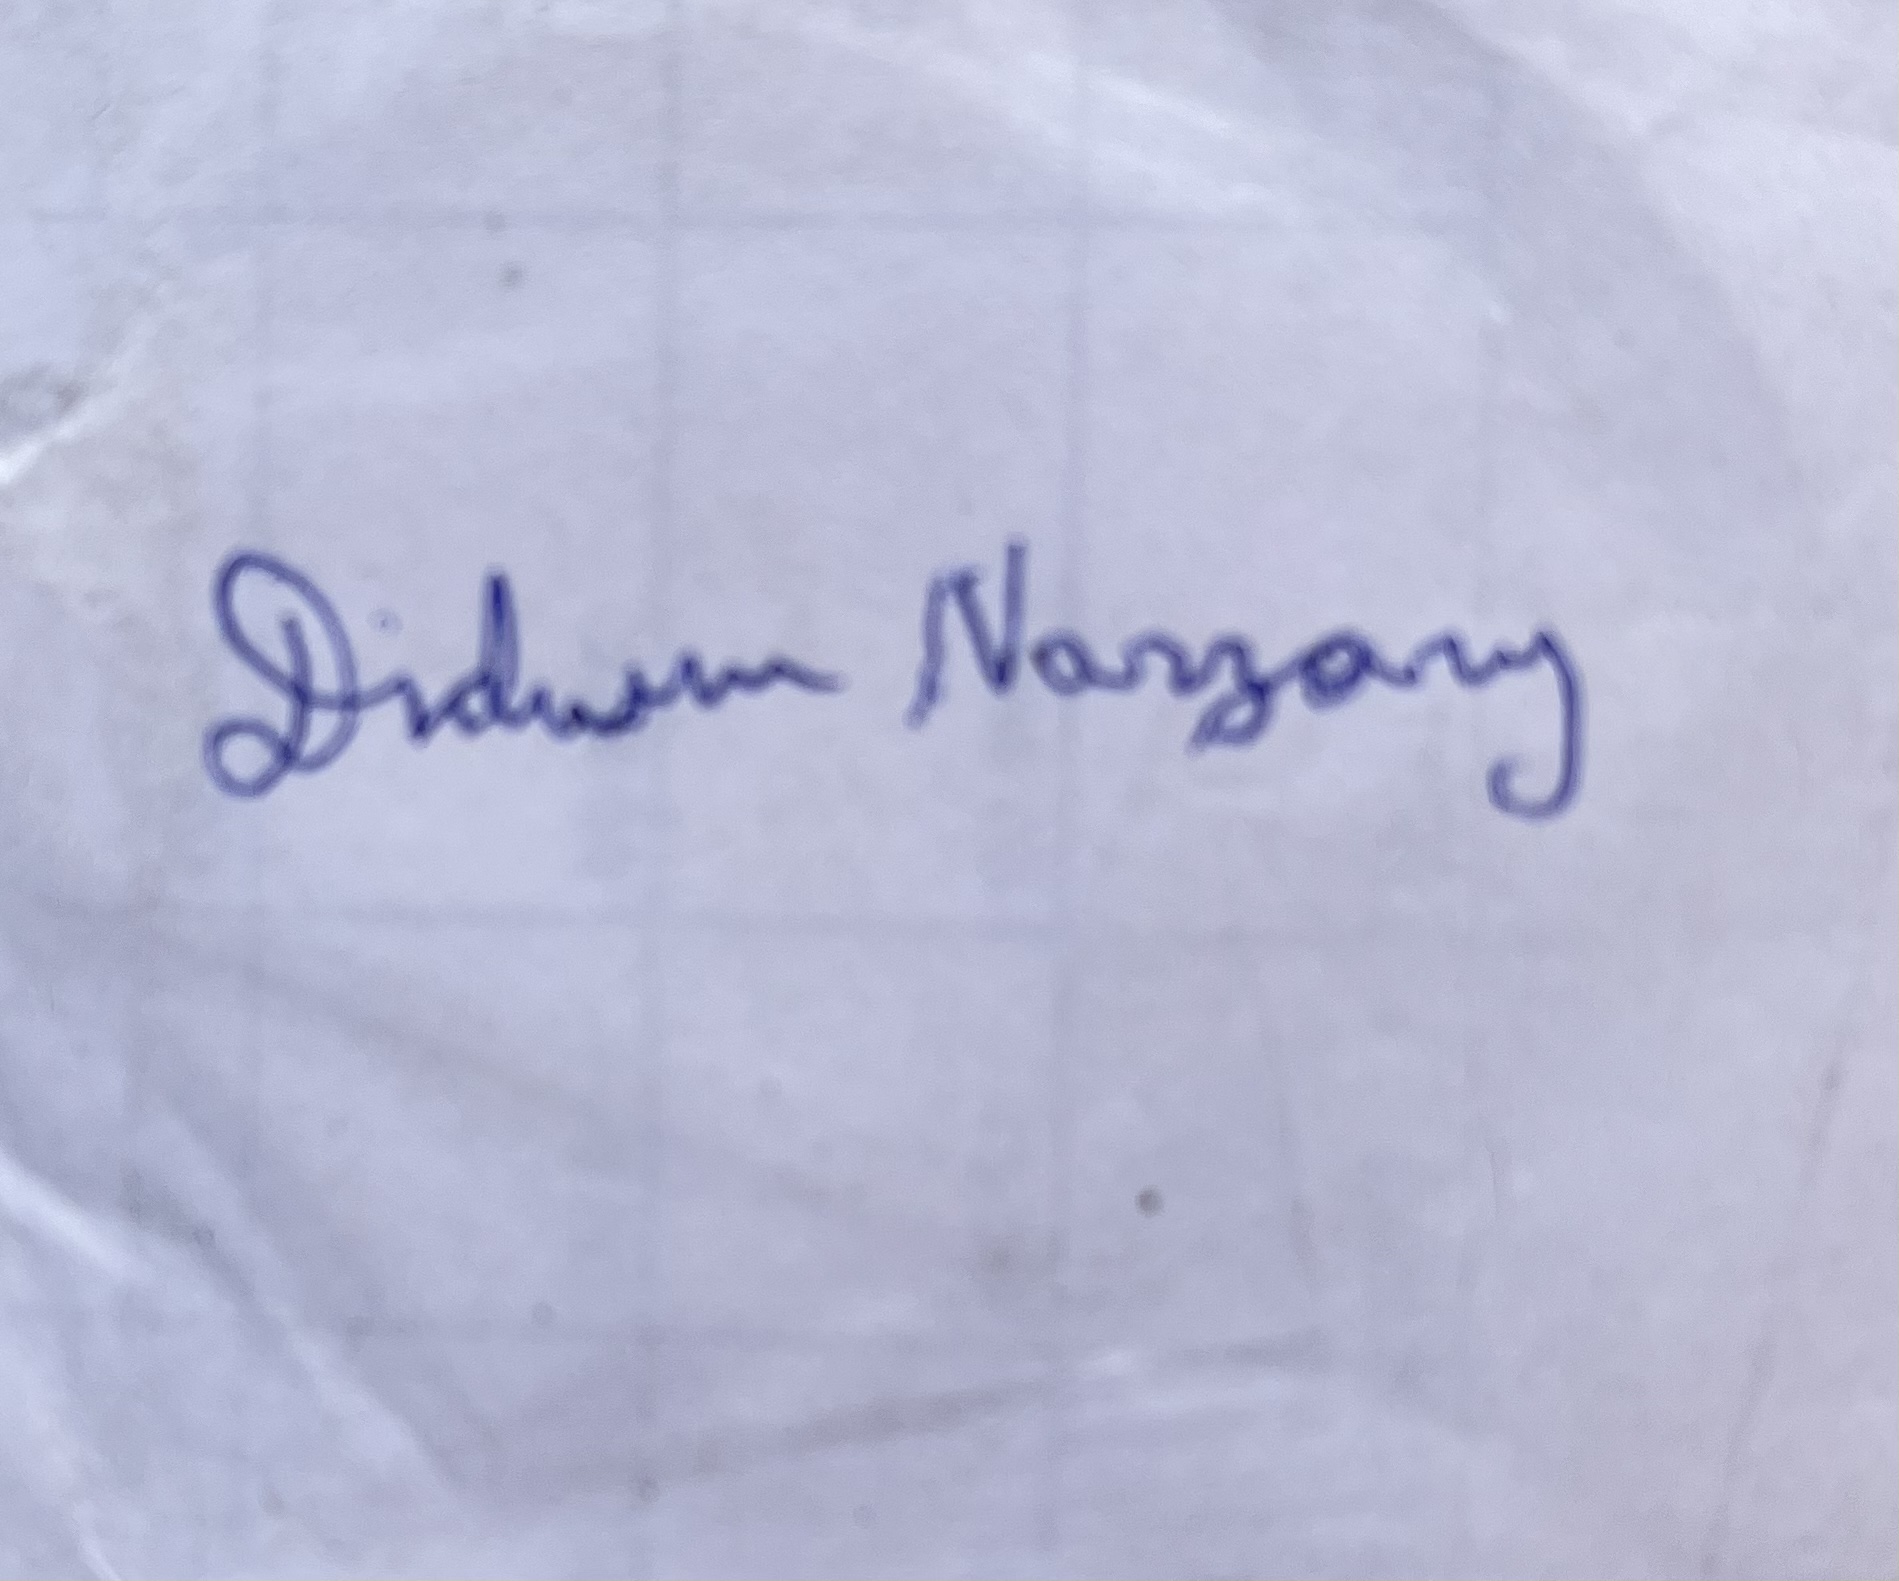 Didwm Narzary